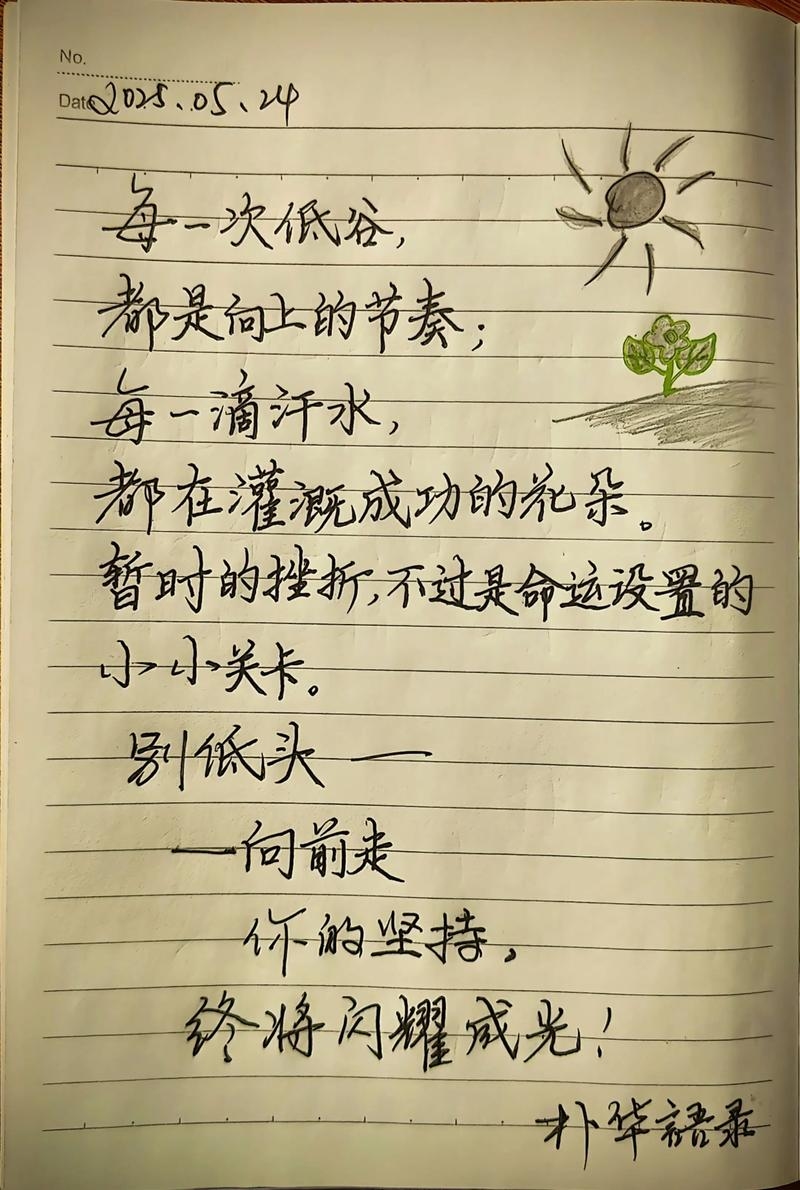 No.
Date 2025.05.24
每一次低谷,
都是向上的节奏;
每一滴汗水,
都在灌溉成功的花朵。
暂时的挫折,不过是命运设置的
小小关卡。
别低头—
—向前走
你的坚持,
终将闪耀成光!
朴华語录